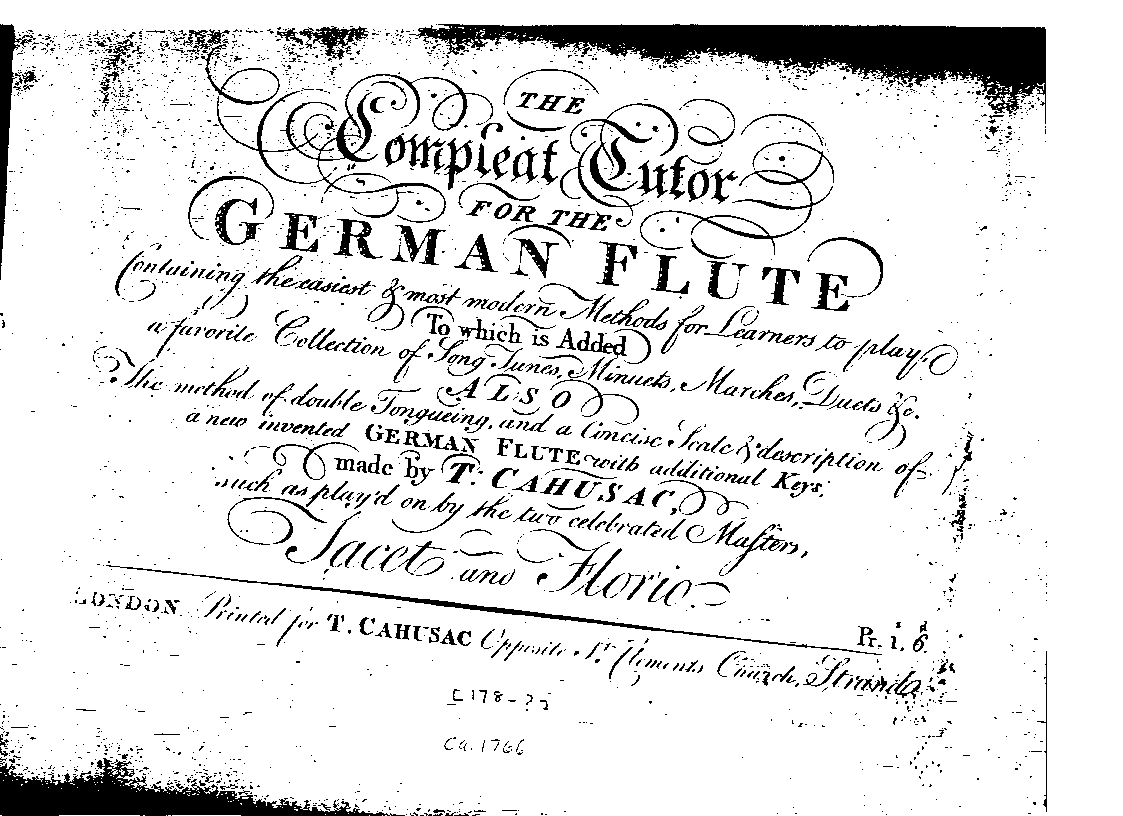 THE
Compleat Tutor
FOR THE
GERMAN FLUTE
Containing the easiest & most modern Methods for Learners to play,
To which is Added
a favorite Collection of Song Tunes, Minuets, Marches, Duets &c.
ALSO
The method of double Tongueing, and a Concise Scale & description of
a new invented GERMAN FLUTE with additional Keys,
made by T: CAHUSAC,
such as play'd on by the two celebrated Masters,
Tacet and Florio.
Pr. 1s, 6d
LONDON Printed for T. CAHUSAC Opposite St. Clements Church, Strand
[178-?]
Ca. 1766